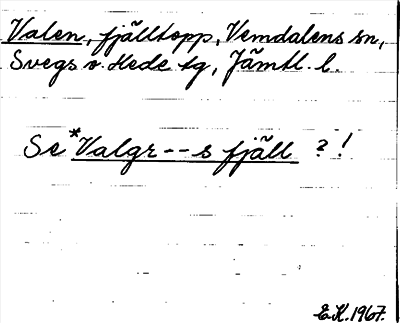 Valen, fjälltopp, Vemdalens sn,
Svegs o. Hede tg, Jämtl. l.
Se *Valgr--s fjäll ?!
E.K. 1967.